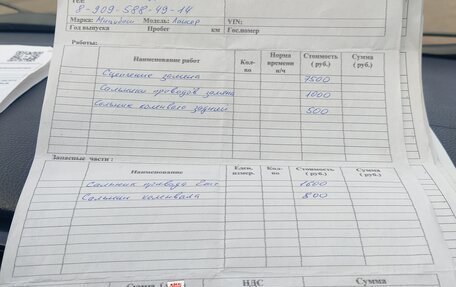 Тел:
8-909-588-49-14
Марка: Мицубиси Модель: Лансер VIN:
Год выпуска Пробег км Гос.номер
Работы:
Наименование работ Кол-во Норма времени н/ч Стоимость (руб.) Сумма (руб.)
Сцепление замена 7500
Сальники приводов замена 1000
Сальник коленвого задний 500
Запасные части:
Наименование Един. измер. Кол-во Стоимость (руб.) Сумма (руб.)
Сальник привода 2шт 1600
Сальник коленвала 800
Сумма НДС Сумма